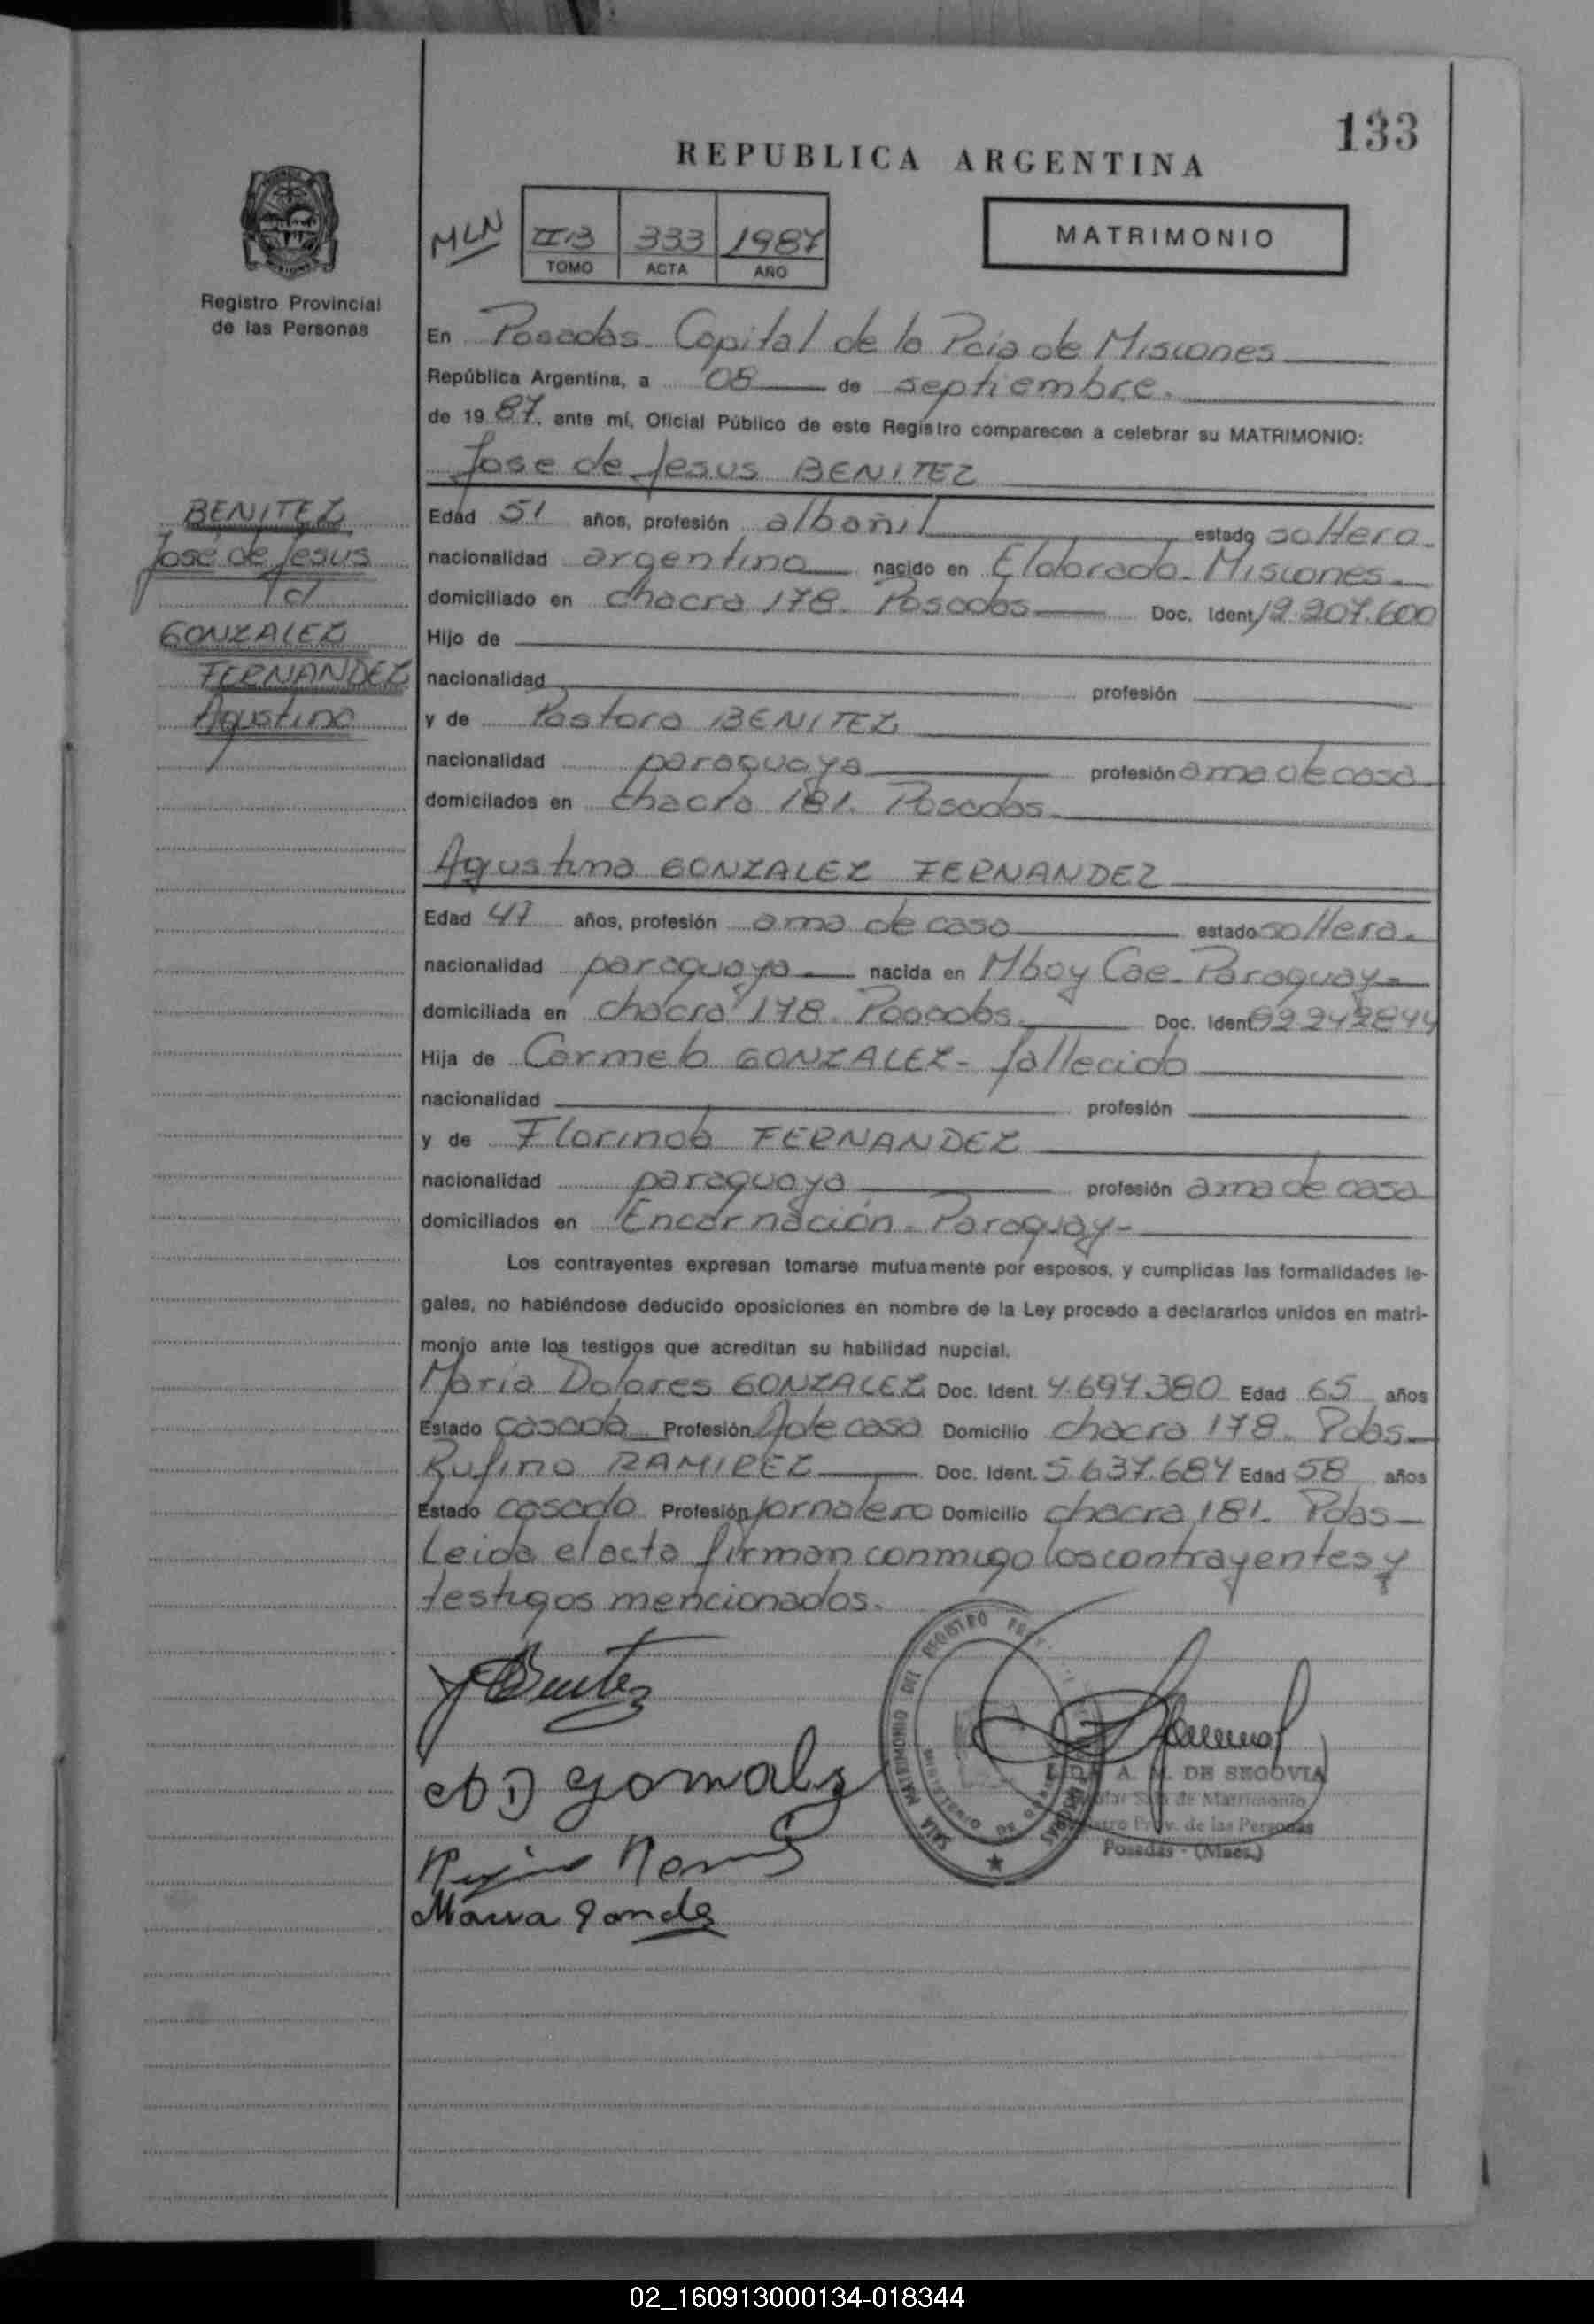 133
REPUBLICA ARGENTINA
MLN
II B 333 1987
TOMO ACTA AÑO
MATRIMONIO
Registro Provincial
de las Personas
En Posadas Capital de la Pcia de Misiones
República Argentina, a 08 de septiembre.
de 1987. ante mí, Oficial Público de este Registro comparecen a celebrar su MATRIMONIO:
Jose de Jesus BENITEZ
BENITEZ
José de Jesus
c/
GONZALEZ
FERNANDEZ
Agustina
Edad 51 años, profesión albañil estado soltero.
nacionalidad argentina nacido en Eldorado. Misiones
domiciliado en chacra 178. Posadas Doc. Ident. 12.207.600
Hijo de
nacionalidad profesión
y de Pastora BENITEZ
nacionalidad paraguaya profesión ama de casa
domicilados en chacra 181. Posadas.
Agustina GONZALEZ FERNANDEZ
Edad 47 años, profesión ama de casa estado soltera.
nacionalidad paraguaya nacida en Mboy Cae. Paraguay
domiciliada en chacra 178. Posadas. Doc. Ident. 92242844
Hija de Carmelo GONZALEZ - fallecido
nacionalidad profesión
y de Florinda FERNANDEZ
nacionalidad paraguaya profesión ama de casa
domiciliados en Encarnación. Paraguay-
Los contrayentes expresan tomarse mutuamente por esposos, y cumplidas las formalidades le-
gales, no habiéndose deducido oposiciones en nombre de la Ley procedo a declararlos unidos en matri-
monio ante los testigos que acreditan su habilidad nupcial.
Maria Dolores GONZALEZ Doc. Ident. 4.694.380 Edad 65 años
Estado casada Profesión A de casa Domicilio chacra 178. Pdas
Rufino RAMIREZ Doc. Ident. 5.637.684 Edad 58 años
Estado casado Profesión jornalero Domicilio chacra 181. Pdas
Leida el acta firman conmigo los contrayentes y
testigos mencionados.
J Benitez
SALA MATRIMONIO DEL REGISTRO
A. M. DE SEGOVIA
Sala de Matrimonio
Prov. de las Personas
Posadas - (Mnes.)
02_160913000134-018344